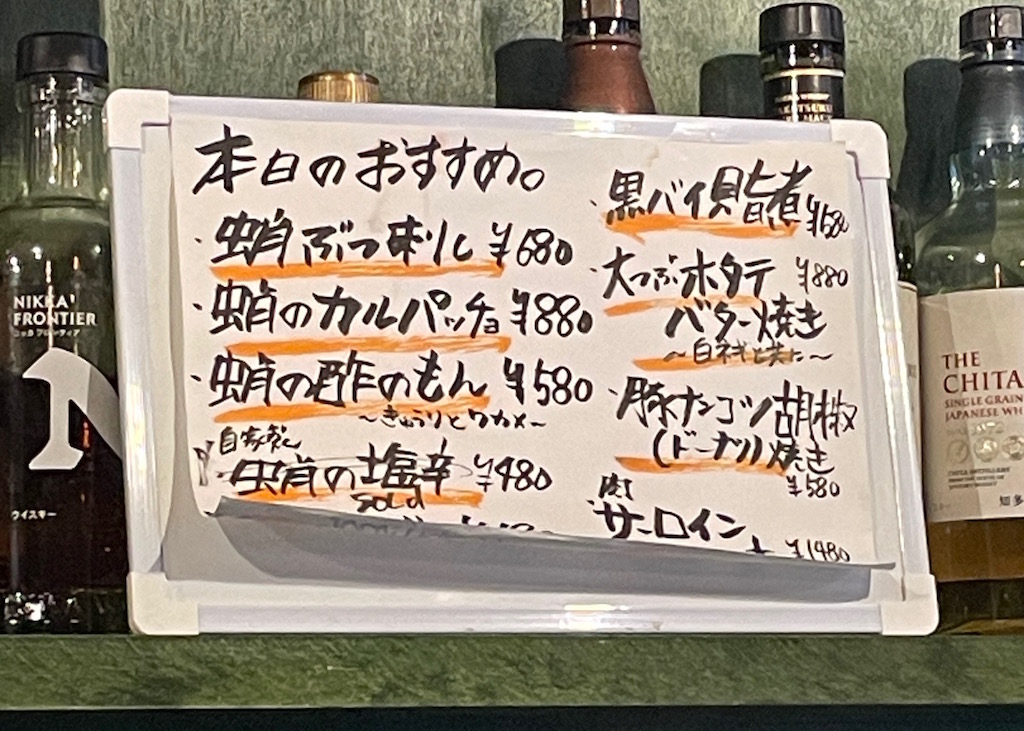 本日のおすすめ。
・蛸ぶつ刺し ¥680
・蛸のカルパッチョ ¥880
・蛸の酢のもん ¥580
〜きゅうりとワカメ〜
自家製
蛸の塩辛 ¥480
sold
・黒バイ貝旨煮 ¥680
・大つぶホタテ ¥880
バター焼き
〜白ネギと共に〜
・豚ナンコツ胡椒
(ドーナツ)焼き
¥580
サーロイン
¥1480
NIKKA
FRONTIER
ニッカ フロンティア
N
ウイスキー
THE
CHITA
SINGLE GRAIN
JAPANESE WH
知多